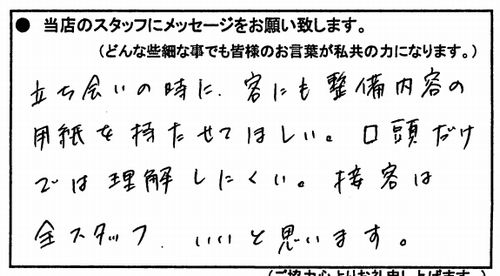 ● 当店のスタッフにメッセージをお願い致します。
(どんな些細な事でも皆様のお言葉が私共の力になります。)
立ち会いの時に、客にも整備内容の
用紙を持たせてほしい。口頭だけ
では理解しにくい。接客は
全スタッフ、いいと思います。
(ご協力心よりお礼申し上げます。)